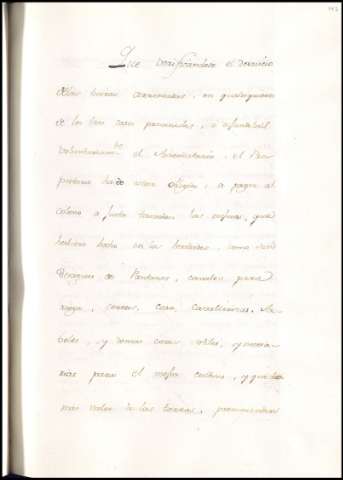 Que verificandose el desaucio
de las tierras arrendadas, en qualesquiera
de los tres casos prevenidos, o ausentandose
voluntariamte el Arrendatario, el Pro
pietario ha de estar obligado, a pagar al
colono a justa tasacion las mejoras, que
hubiere hecho en la heredad, como son
de Pantanos, canales para
riego, cercas, casa, Ar
boles, y demas cosas utiles, y necesa
rias para el mejor cultivo, y que den
mas valor a las tierras,